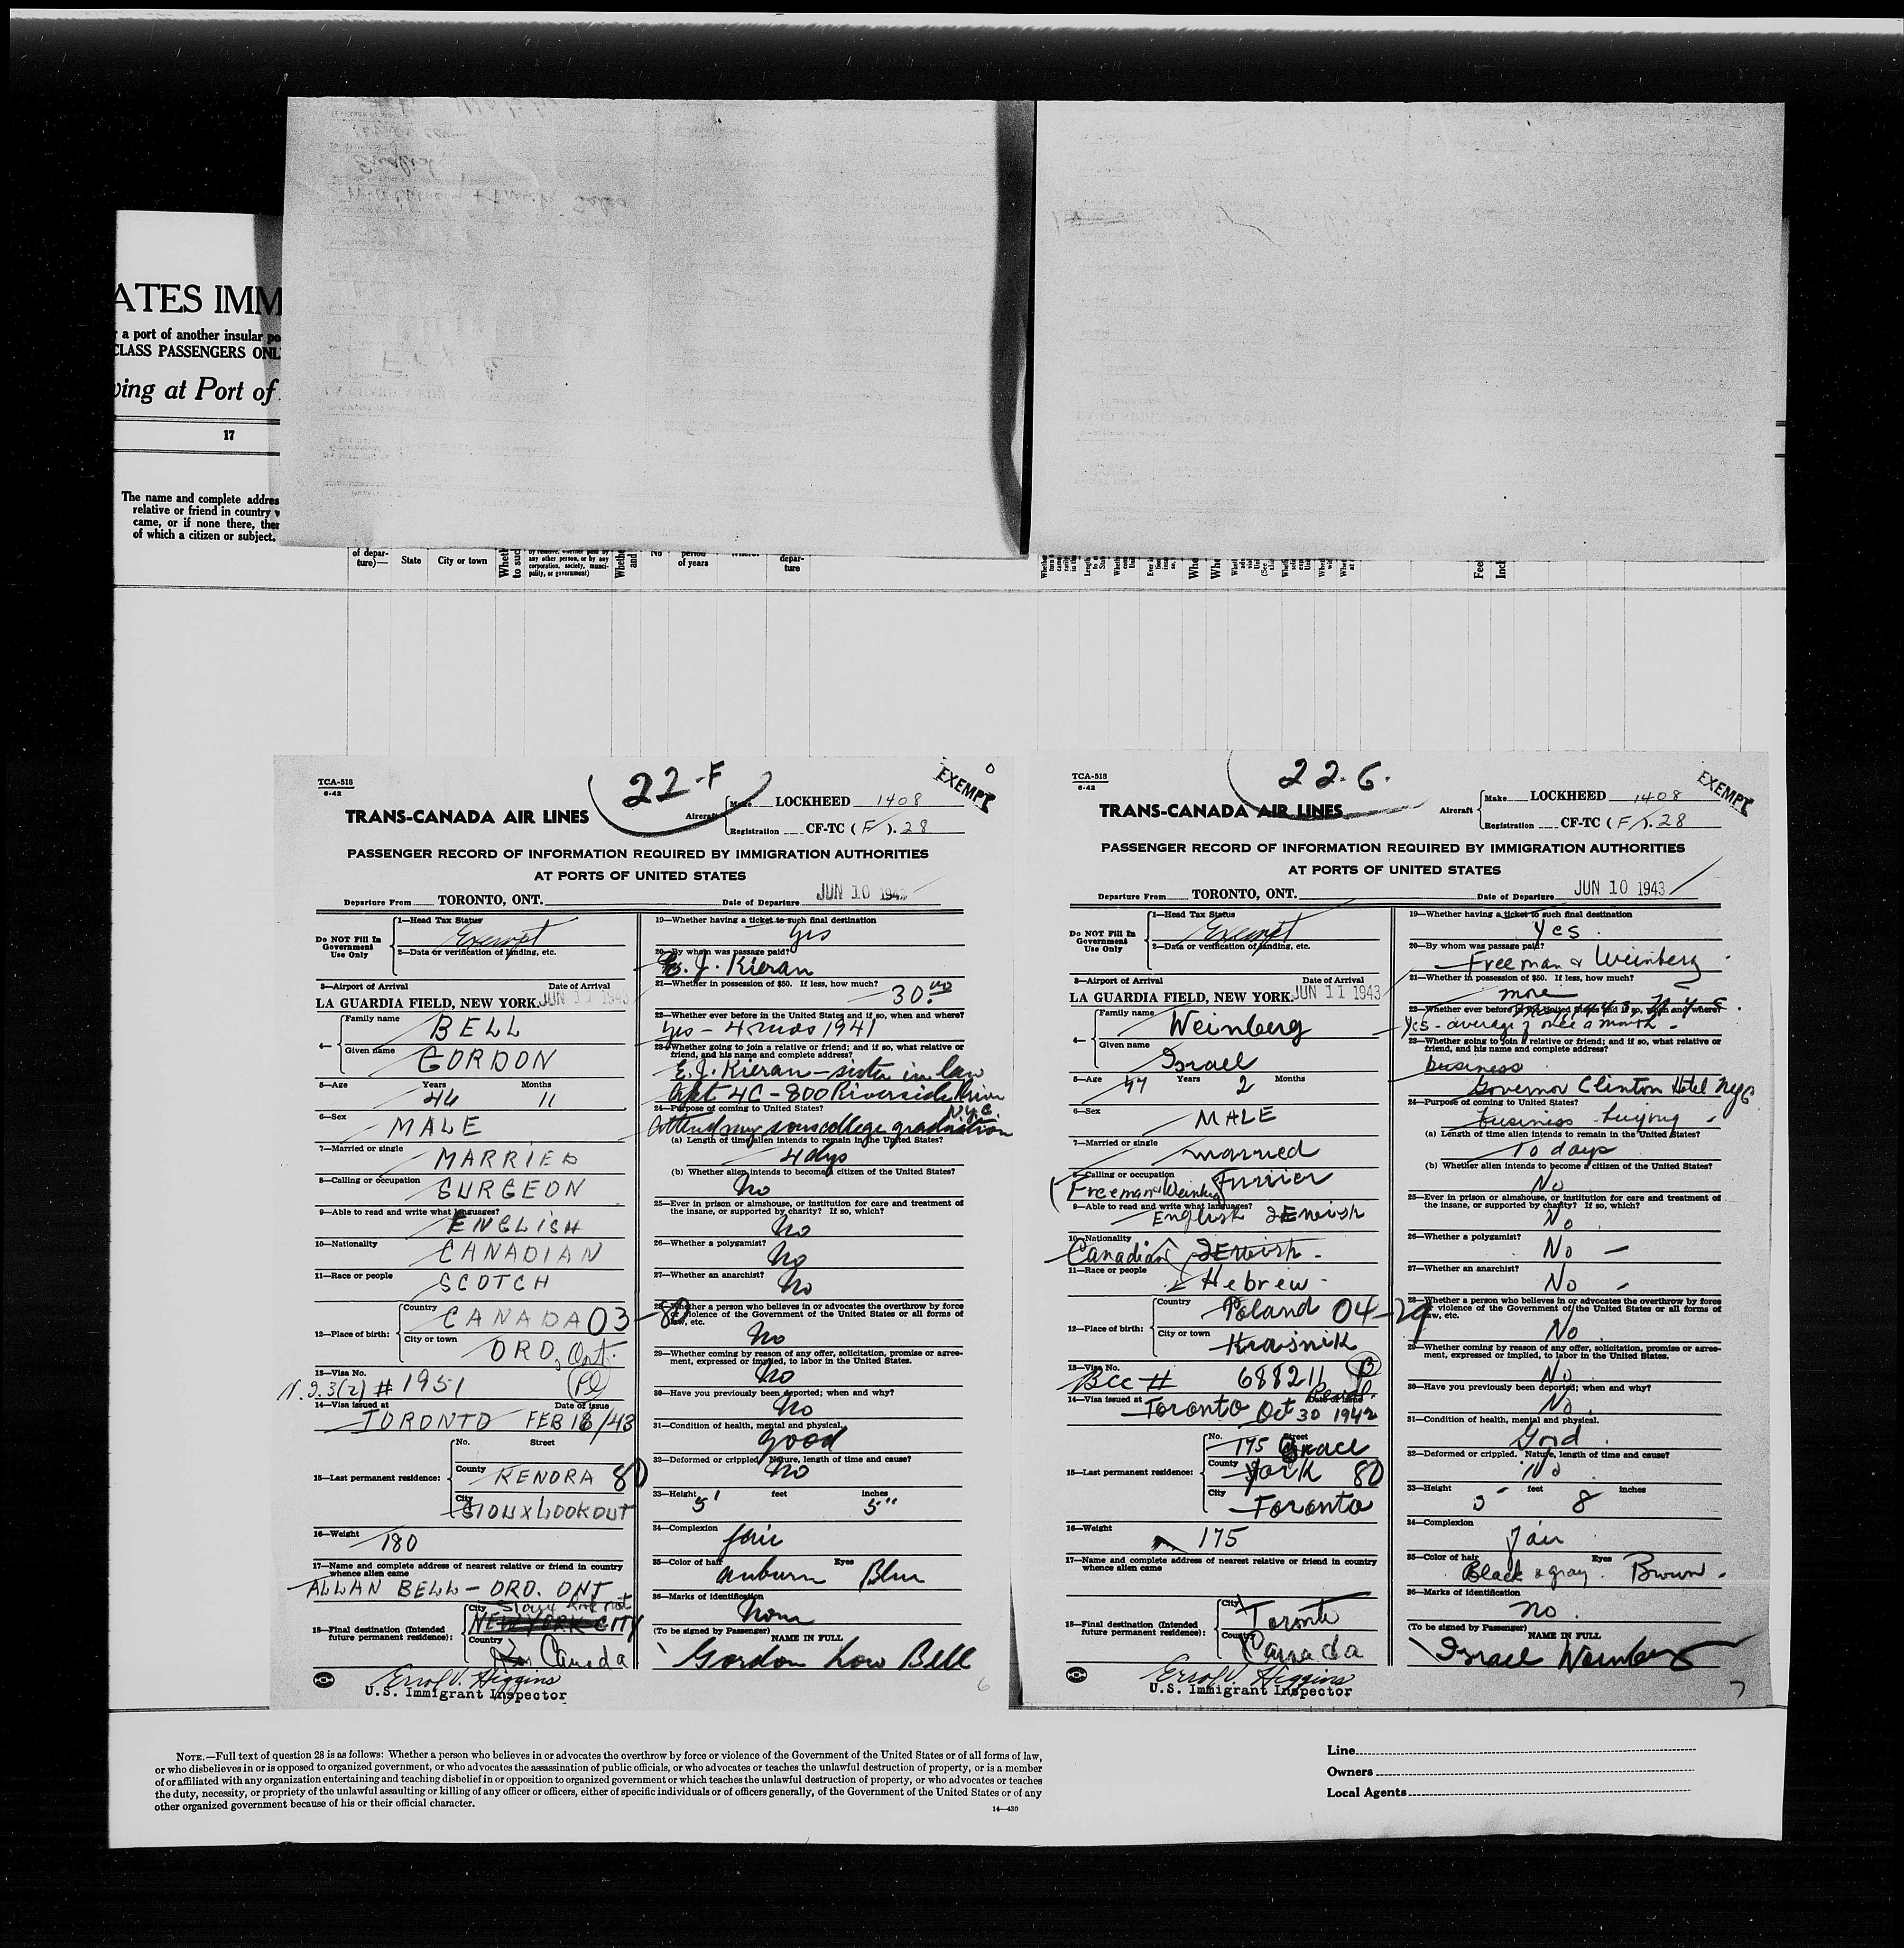 ATES IMM
r a port of another insular po
CLASS PASSENGERS ONL
ving at Port of
17
The name and complete addres
relative or friend in country w
came, or if none there, then
of which a citizen or subject.
of depar-
ture)—
State
City or town
any other person, or by any
corporation, society, munici-
pality, or government)
No
period
of years
depar-
ture
22-F
TCA-518
6-42
EXEMPT
TRANS-CANADA AIR LINES
Aircraft
Make LOCKHEED 1408
Registration CF-TC ( F ). 28
PASSENGER RECORD OF INFORMATION REQUIRED BY IMMIGRATION AUTHORITIES
AT PORTS OF UNITED STATES
Departure From TORONTO, ONT. Date of Departure JUN 10 1943
Do NOT Fill In
Government
Use Only
1—Head Tax Status
Exempt
2—Data or verification of landing, etc.
3—Airport of Arrival Date of Arrival
LA GUARDIA FIELD, NEW YORK. JUN 11 1943
4—
Family name
BELL
Given name
GORDON
5—Age Years Months
44 11
6—Sex
MALE
7—Married or single
MARRIED
8—Calling or occupation
SURGEON
9—Able to read and write what languages?
ENGLISH
10—Nationality
CANADIAN
11—Race or people
SCOTCH
12—Place of birth:
Country
CANADA 03-80
City or town
ORO, Ont.
13—Visa No.
# 1951
14—Visa issued at Date of issue
TORONTO FEB 18/43
15—Last permanent residence:
No. Street
County
KENORA 80
City
SIOUX LOOKOUT
16—Weight
180
17—Name and complete address of nearest relative or friend in country
whence alien came
ALLAN BELL — ORO. ONT
18—Final destination (Intended
future permanent residence):
City Sioux look out
NEW YORK CITY
Country
Canada
Errol V. Higgins
U.S. Immigrant Inspector
19—Whether having a ticket to such final destination
Yes
20—By whom was passage paid?
E. J. Kieran
21—Whether in possession of $50. If less, how much?
30.00
22—Whether ever before in the United States and if so, when and where?
Yes - 4 mos 1941
23—Whether going to join a relative or friend; and if so, what relative or
friend, and his name and complete address?
E. J. Kieran - sister in law
Apt 4C - 800 Riverside Drive
N.Y.C.
24—Purpose of coming to United States?
Attend my sons college graduation
(a) Length of time alien intends to remain in the United States?
4 dys
(b) Whether alien intends to become a citizen of the United States?
No
25—Ever in prison or almshouse, or institution for care and treatment of
the insane, or supported by charity? If so, which?
No
26—Whether a polygamist?
No
27—Whether an anarchist?
No
28—Whether a person who believes in or advocates the overthrow by force
or violence of the Government of the United States or all forms of
law, etc.
No
29—Whether coming by reason of any offer, solicitation, promise or agree-
ment, expressed or implied, to labor in the United States.
No
30—Have you previously been deported; when and why?
No
31—Condition of health, mental and physical.
good
32—Deformed or crippled. Nature, length of time and cause?
No
33—Height feet inches
5' 5"
34—Complexion
fair
35—Color of hair Eyes
auburn Blue
36—Marks of identification
None
(To be signed by Passenger)
NAME IN FULL
Gordon Low Bell
6
22-G.
TCA-518
6-42
EXEMPT
TRANS-CANADA AIR LINES
Aircraft
Make LOCKHEED 1408
Registration CF-TC ( F ). 28
PASSENGER RECORD OF INFORMATION REQUIRED BY IMMIGRATION AUTHORITIES
AT PORTS OF UNITED STATES
Departure From TORONTO, ONT. Date of Departure JUN 10 1943
Do NOT Fill In
Government
Use Only
1—Head Tax Status
Exempt
2—Data or verification of landing, etc.
3—Airport of Arrival Date of Arrival
LA GUARDIA FIELD, NEW YORK. JUN 11 1943
4—
Family name
Weinberg
Given name
Israel
5—Age Years Months
47 2
6—Sex
MALE
7—Married or single
married
8—Calling or occupation
Freeman & Weinberg Furrier
9—Able to read and write what languages?
English JEwish
10—Nationality
Canadian JEwish -
11—Race or people
Hebrew -
12—Place of birth:
Country
Poland 04-29
City or town
Krasnik
13—Visa No.
Bcc # 688211
14—Visa issued at Date of issue
Toronto Oct 30 1942
15—Last permanent residence:
No. Street
175 Grace
County
York 80
City
Toronto
16—Weight
175
17—Name and complete address of nearest relative or friend in country
whence alien came
18—Final destination (Intended
future permanent residence):
City
Toronto
Country
Canada
Errol V. Higgins
U.S. Immigrant Inspector
19—Whether having a ticket to such final destination
Yes.
20—By whom was passage paid?
Freeman & Weinberg
21—Whether in possession of $50. If less, how much?
more
22—Whether ever before in the United States and if so, when and where?
Yes - average of once a month -
23—Whether going to join a relative or friend; and if so, what relative or
friend, and his name and complete address?
business
Governor Clinton Hotel NYC
24—Purpose of coming to United States?
business - buying -
(a) Length of time alien intends to remain in the United States?
10 days
(b) Whether alien intends to become a citizen of the United States?
No
25—Ever in prison or almshouse, or institution for care and treatment of
the insane, or supported by charity? If so, which?
No
26—Whether a polygamist?
No —
27—Whether an anarchist?
No —
28—Whether a person who believes in or advocates the overthrow by force
or violence of the Government of the United States or all forms of
law, etc.
No
29—Whether coming by reason of any offer, solicitation, promise or agree-
ment, expressed or implied, to labor in the United States.
No
30—Have you previously been deported; when and why?
No.
31—Condition of health, mental and physical.
Good.
32—Deformed or crippled. Nature, length of time and cause?
No
33—Height feet inches
5 8
34—Complexion
fair
35—Color of hair Eyes
Black & gray. Brown.
36—Marks of identification
no.
(To be signed by Passenger)
NAME IN FULL
Israel Weinberg
7
NOTE.—Full text of question 28 is as follows: Whether a person who believes in or advocates the overthrow by force or violence of the Government of the United States or of all forms of law,
or who disbelieves in or is opposed to organized government, or who advocates the assassination of public officials, or who advocates or teaches the unlawful destruction of property, or is a member
of or affiliated with any organization entertaining and teaching disbelief in or opposition to organized government or which teaches the unlawful destruction of property, or who advocates or teaches
the duty, necessity, or propriety of the unlawful assaulting or killing of any officer or officers, either of specific individuals or of officers generally, of the Government of the United States or of any
other organized government because of his or their official character.
14—430
Line
Owners
Local Agents